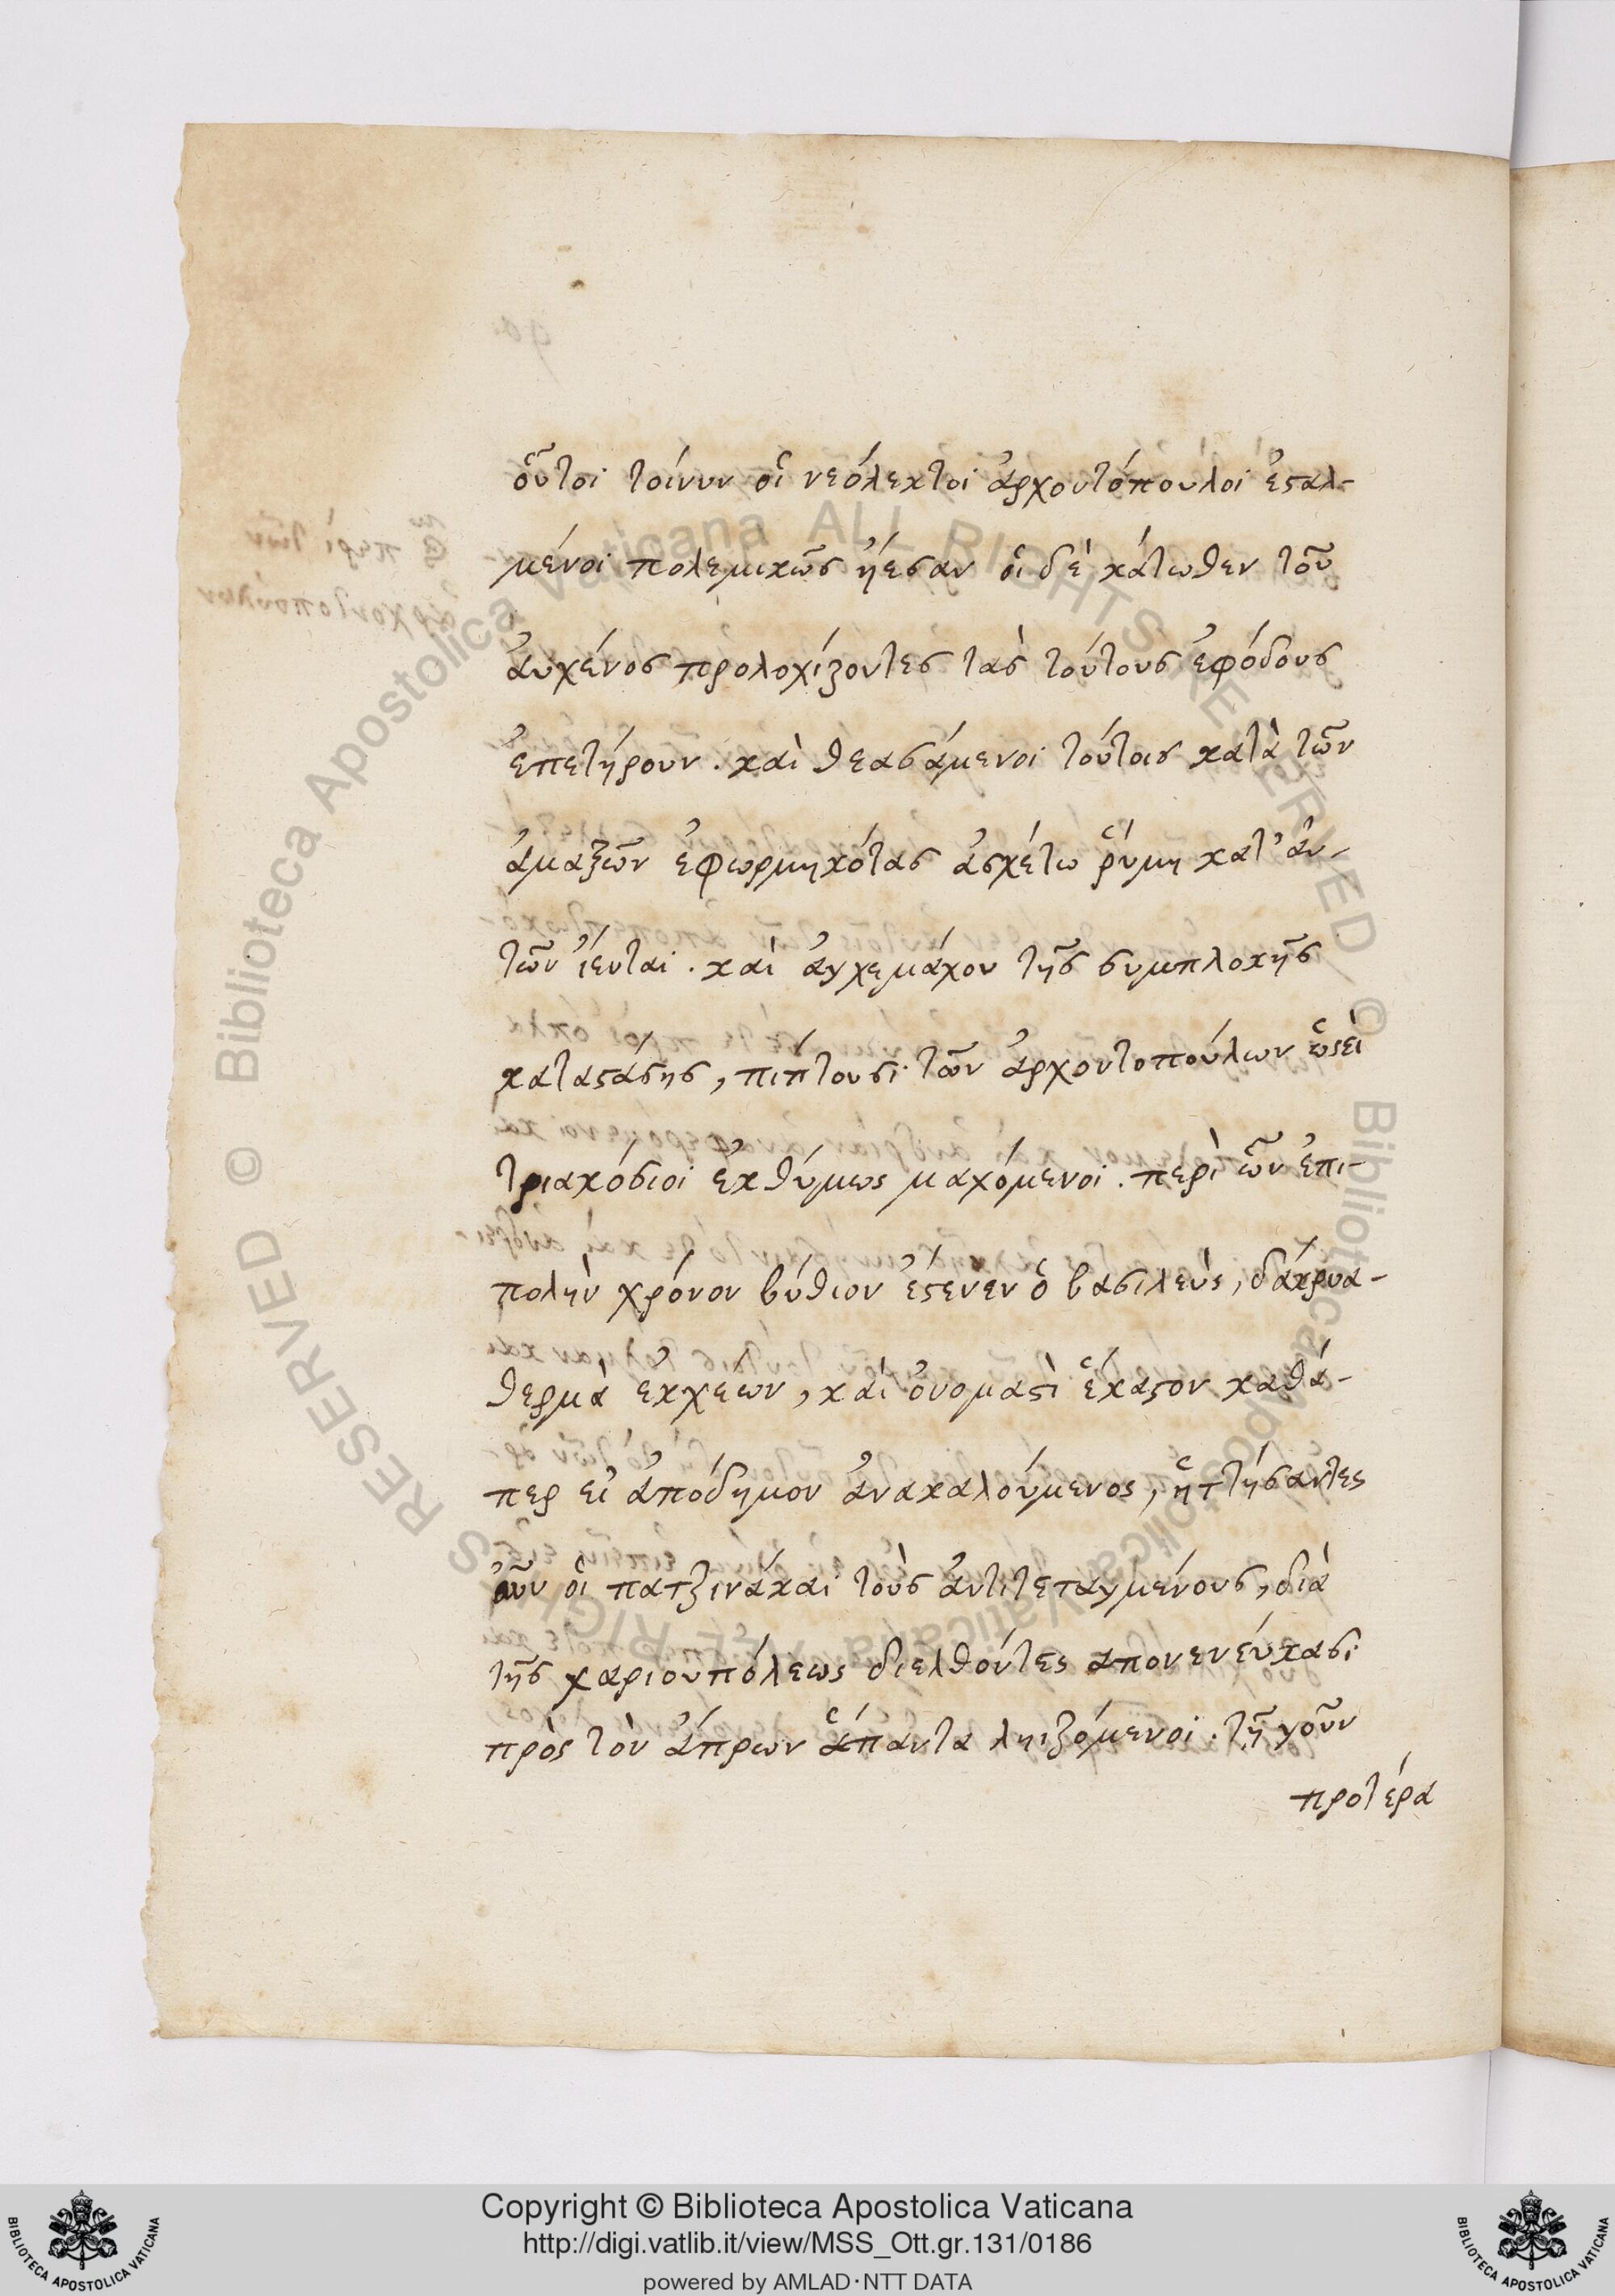 οὗτοι τοίνυν οἱ νεόλεκτοι ἀρχοντόπουλοι ἐσταλ-
μένοι πολεμικῶς ἤεσαν οἱ δὲ κάτωθεν τοῦ
ἀυχένος προλοχίζοντες τὰς τούτους ἐφόδους
ἐπετήρουν. καὶ θεασάμενοι τούτοις κατὰ τῶν
ἁμαξῶν ἐφωρμηκότας ἀσχέτω ῥύμη κατ' ἀυ-
τῶν ἵενται. καὶ ἀγχεμάχου τῆς συμπλοκῆς
καταστάσης, πίπτουσι τῶν ἀρχοντοπούλων ὡσεὶ
τριακόσιοι ἐκθύμως μαχόμενοι. περὶ ὧν ἐπι-
πολὴν χρόνον βύθιον ἔστενεν ὁ βασιλεὺς, δάκρυα-
θερμὰ ἐκχεων, καὶ ὀνομαστὶ ἕκαστον καθά-
περ εἰ ἀπόδημον ἀνακαλούμενος, ἡττήσαντες
οὖν οἱ πατζινάκαι τοὺς ἀντιτεταγμένους, διὰ
τῆς χαριουπόλεως διελθόντες απονενεύκασι
πρὸς τὸν ἄπρων ἅπαντα ληιζόμενοι. τῆ γοῦν
προτέρα
Copyright © Biblioteca Apostolica Vaticana
http://digi.vatlib.it/view/MSS_Ott.gr.131/0186
powered by AMLAD·NTT DATA
BIBLIOTECA APOSTOLICA VATICANA
BIBLIOTECA APOSTOLICA VATICANA
© Biblioteca Apostolica Vaticana ALL RIGHTS RESERVED
© Biblioteca Apostolica Vaticana ALL RIGHTS RESERVED